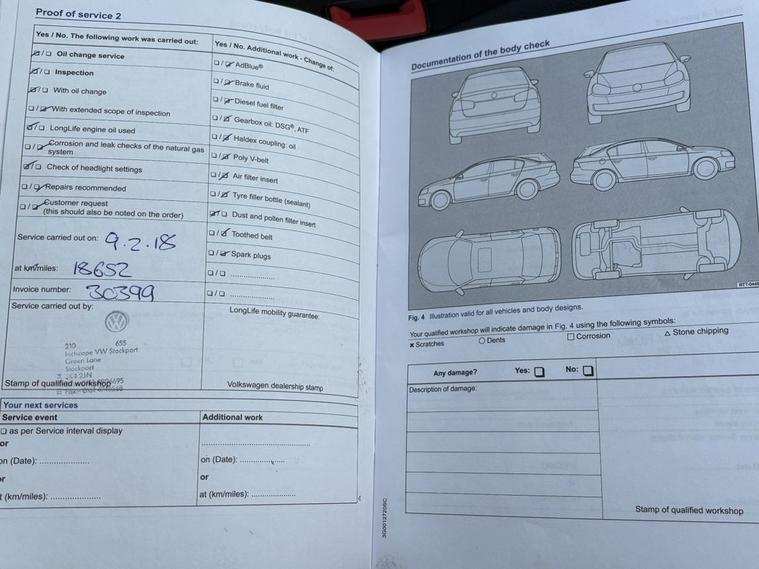 Proof of service 2
Yes / No. The following work was carried out:
☑/☐ Oil change service
☑/☐ Inspection
☑/☐ With oil change
☐/☑ With extended scope of inspection
☑/☐ LongLife engine oil used
☐/☑ Corrosion and leak checks of the natural gas
system
☑/☐ Check of headlight settings
☐/☑ Repairs recommended
☐/☑ Customer request
(this should also be noted on the order)
Service carried out on: 9.2.18
at km/miles: 18652
Invoice number: 30399
Service carried out by:
210 655
Inchcape VW Stockport
Green Lane
Stockport
Stamp of qualified workshop
Yes / No. Additional work - Change of:
☐/☑ AdBlue®
☐/☑ Brake fluid
☐/☑ Diesel fuel filter
☐/☑ Gearbox oil: DSG®, ATF
☐/☑ Haldex coupling: oil
☐/☑ Poly V-belt
☐/☑ Air filter insert
☐/☑ Tyre filler bottle (sealant)
☑/☐ Dust and pollen filter insert
☐/☑ Toothed belt
☐/☑ Spark plugs
☐/☐ ......................
☐/☐ ......................
LongLife mobility guarantee:
Volkswagen dealership stamp
Your next services
Service event
☐ as per Service interval display
or
on (Date): ....................
or
t (km/miles): ....................
Additional work
..........................................
on (Date): ....................
or
at (km/miles): ..................
Documentation of the body check
Fig. 4 Illustration valid for all vehicles and body designs.
Your qualified workshop will indicate damage in Fig. 4 using the following symbols:
× Scratches ○ Dents □ Corrosion △ Stone chipping
Any damage? Yes: ☐ No: ☐
Description of damage:
Stamp of qualified workshop